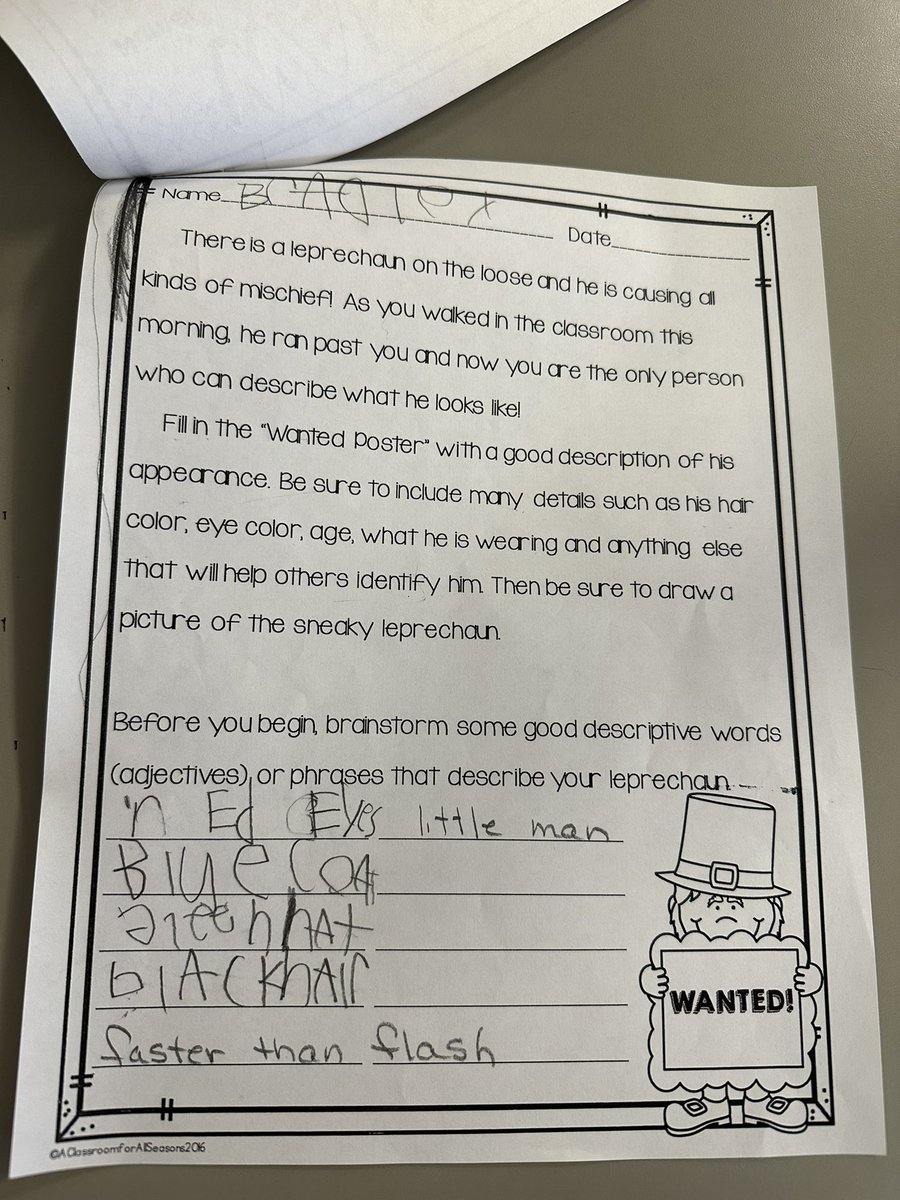 Name Bradley Date
There is a leprechaun on the loose and he is causing all
kinds of mischief! As you walked in the classroom this
morning, he ran past you and now you are the only person
who can describe what he looks like!
Fill in the "Wanted Poster" with a good description of his
appearance. Be sure to include many details such as his hair
color, eye color, age, what he is wearing and anything else
that will help others identify him. Then be sure to draw a
picture of the sneaky leprechaun.
Before you begin, brainstorm some good descriptive words
(adjectives) or phrases that describe your leprechaun.
Ed Eyes little man
Blue Coat
green hat
blACk hAir
faster than flash
WANTED!
©AClassroomforAllSeasons2016